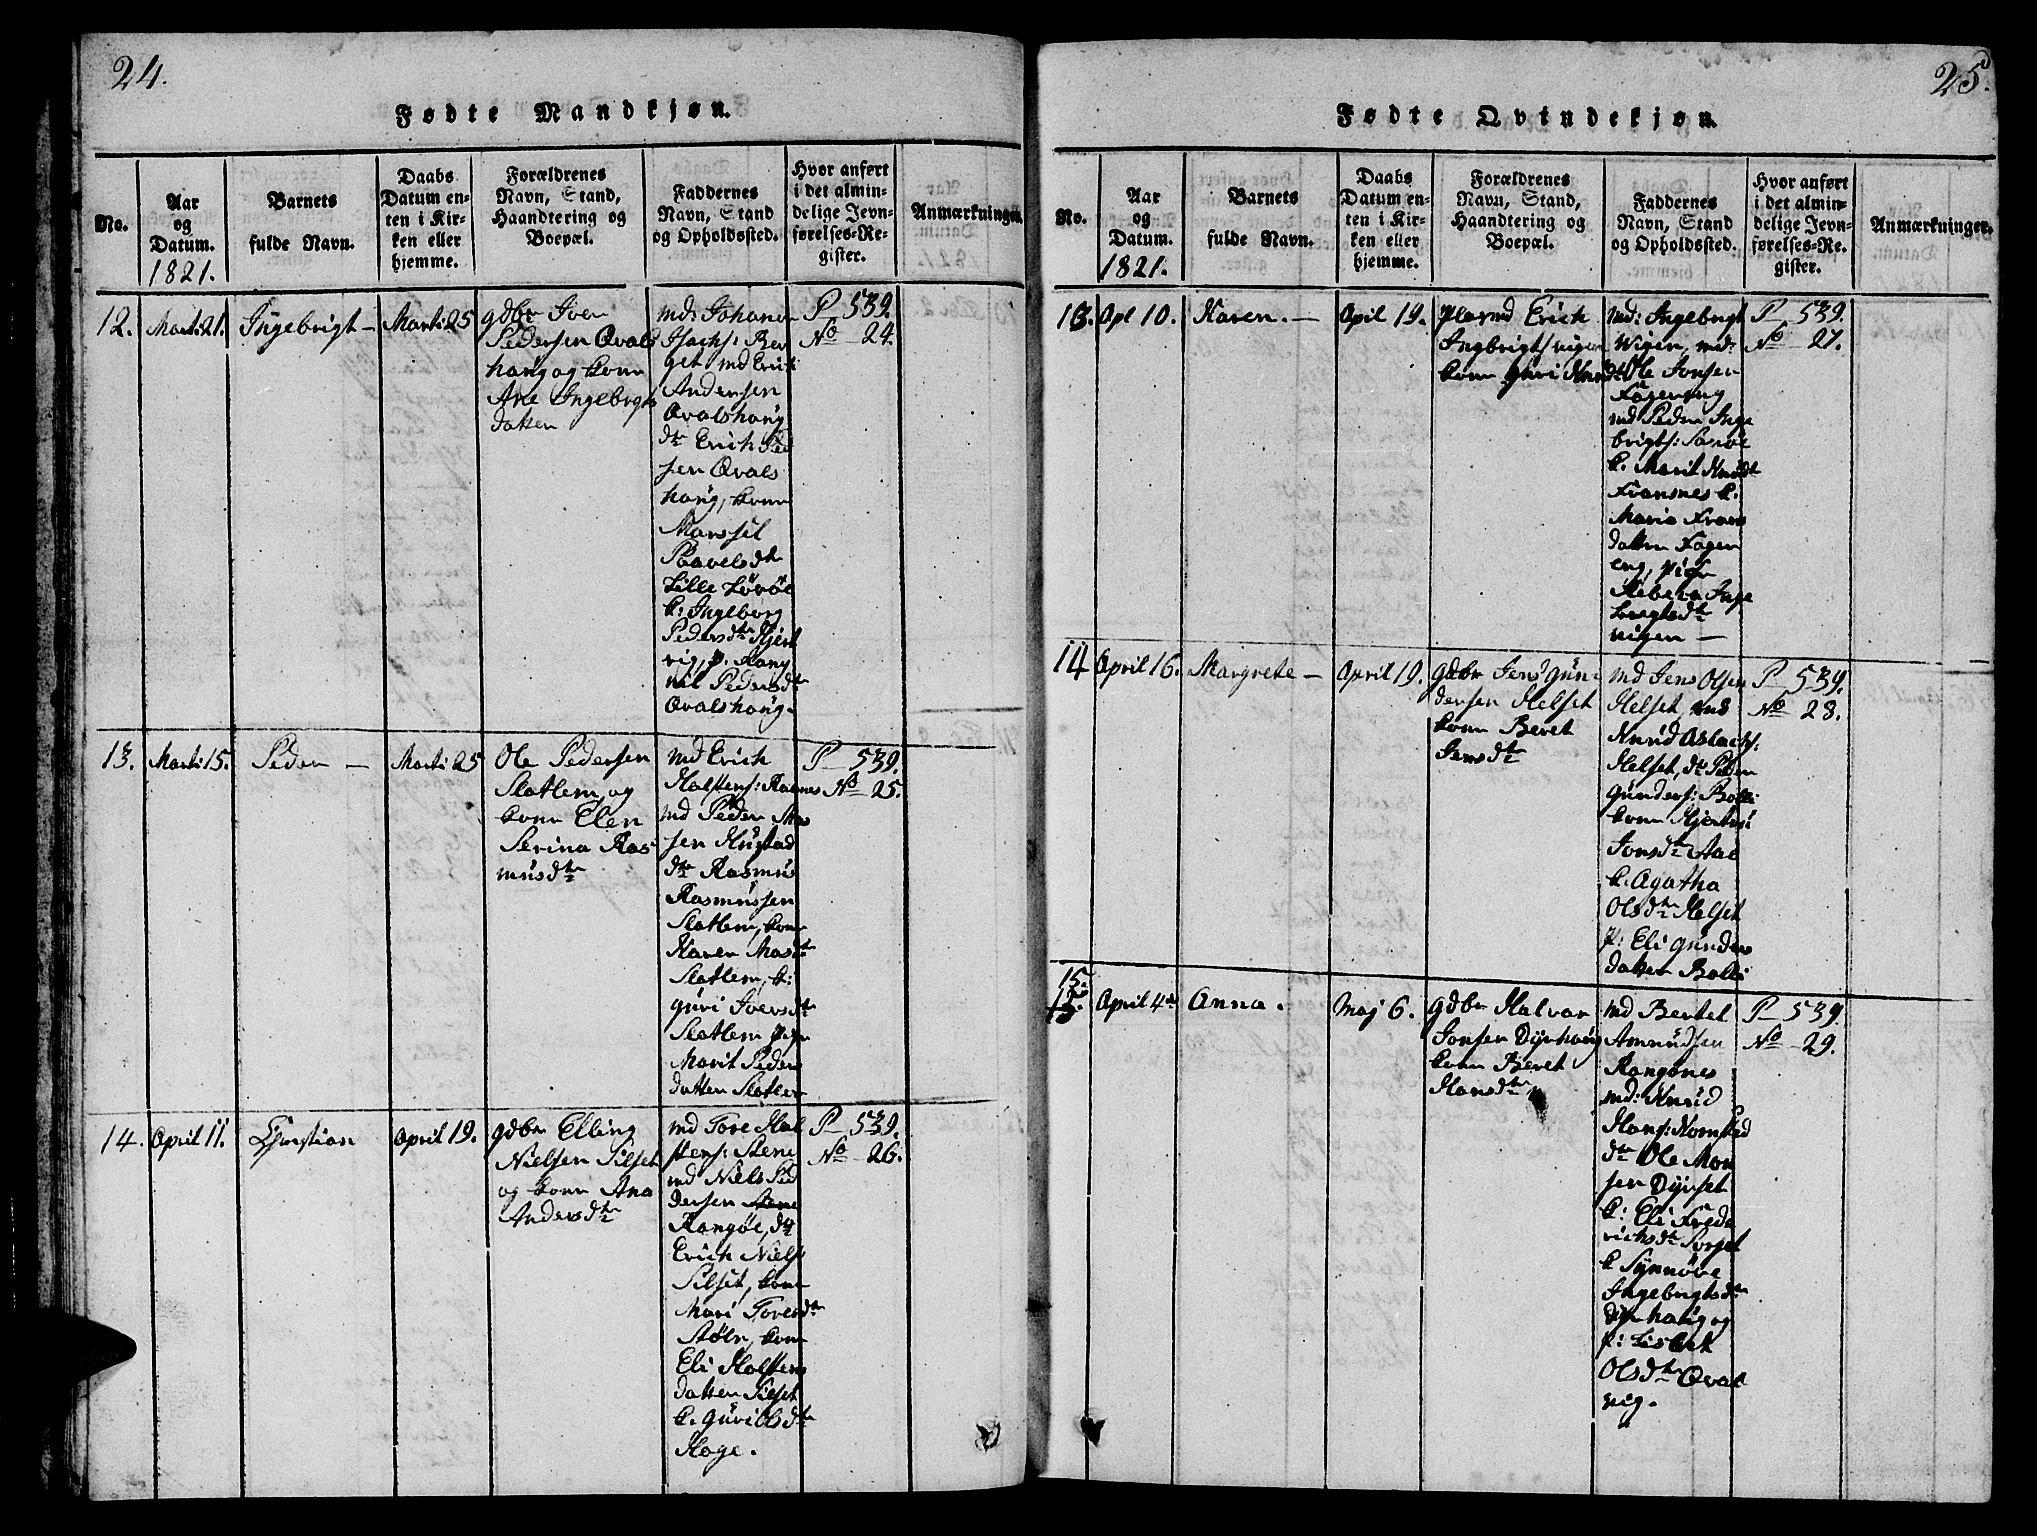 24.
Fødte Mandkjøn.
No.
Aar
og
Datum.
1821.
Barnets
fulde Navn.
Daabs
Datum en-
ten i Kir-
ken eller
hjemme.
Forældrenes
Navn, Stand,
Haandtering og
Boepæl.
Faddernes
Navn, Stand
og Opholdssted.
Hvor anført
i det almin-
delige Jevn-
førelses-Re-
gister.
Anmærkninger.
12.
Marti 21.
Ingebrigt —
Marti 25
gdbr Iver
Pedersen Qvals
haug og kone
Ane Ingebrgts
datter
md: Johann
Isachs: Ber
get md Erich
Andersen
Qvalshaug
dtr Erich Ped
sen Qvals
haug, kone
Marssel
Paavelsdtr
Lille Lørøe
k: Ingeborg
Pedersdtr Hjert
vig, p. Rang
nil Pedersdtr
Qvalshaug.
P 539.
No 24.
13.
Marti 15.
Peder —
Marti 25
Ole Pedersen
Slatlem og
kone Elen
Serina Ras
musdtr
md Erich
Halstens: Ramnes
md Peder
sen Hustad
dtr Rasmus
Rasmussen
Slatlem, kone
Karen Masdtr
Slatlem, k:
guri Iversdtr
Slatlem pige
Marit Peders
datter Slatlem
P 539.
No 25.
14.
April 11.
Christian
April 19.
gdbr Elling
Nielsen Silset
og kone Ana
Andersdtr
md Tore Hal
stens: Stene
md Niels Ped
dersen
Rangøe, dtr
Erich Niels
Silset, kone
Mari Toresdtr
Støle, kone
Eli Halstens
datter Silset
k. guri Olsdtr
Hage.
P 539.
No 26.
25.
Fødte Qvindekjøn.
No.
Aar
og
Datum.
1821.
Barnets
fulde Navn.
Daabs
Datum en-
ten i Kir-
ken eller
hjemme.
Forældrenes
Navn, Stand,
Haandtering og
Boepæl.
Faddernes
Navn, Stand
og Opholdssted.
Hvor anført
i det almin-
delige Jevn-
førelses-Re-
gister.
Anmærkninger.
13.
Apl 10.
Karen. —
April 19.
Plasmd Erich
Ingbrigts vigen
kone guri Knudsdtr
md: Ingebrigt
Wigen, md:
Ole Jonsen
Fagereng
md Peder Inge
brigts:
k. Marit Knudsdtr
Fransnes k.
Maria Frans
datter Fager
eng, pige
Rebeca Inge
bregtsdtr
vigen —
P 539.
No 27.
14
April 16.
Margrete —
April 19.
gdbr Jens gun
dersen Helset
kone Beret
Jensdtr
md Jens Olsen
Helset md
Knud Aslachs:
Helset, dtr Peder
gunders: Bolli
kone
Jonsdtr Aae
k. Agatha
Olsdtr Helset
p: Eli gunders
datter Bolli
P 539.
No 28.
15.
15
April 4de
Anna.
Maj 6.
gdbr Halvor
Jonsen Dyrhaug
kone Beret
Hansdtr
md Bertel
Amundsen
Rangønes
md: Knud
Hans: Hornsted
dtr Ole Mon
sen Dyrset
k: Eli Frede
richsdtr Sorset
k Synnøve
Ingebrigtsdtr
dyrhaug og
p: Lisbet
Olsdtr Qval
vig.
P 539.
No 29.